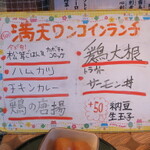 満天ワンコインランチ
松茸ごはん
ハムカツ
チキンカレー
鶏の唐揚
鶏大根
サーモン丼
+50
納豆
生玉子